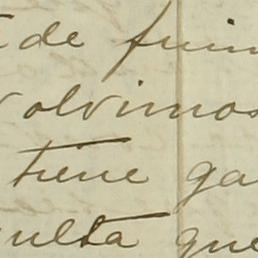 de fuim
volvimos
tiene ga
ulta que